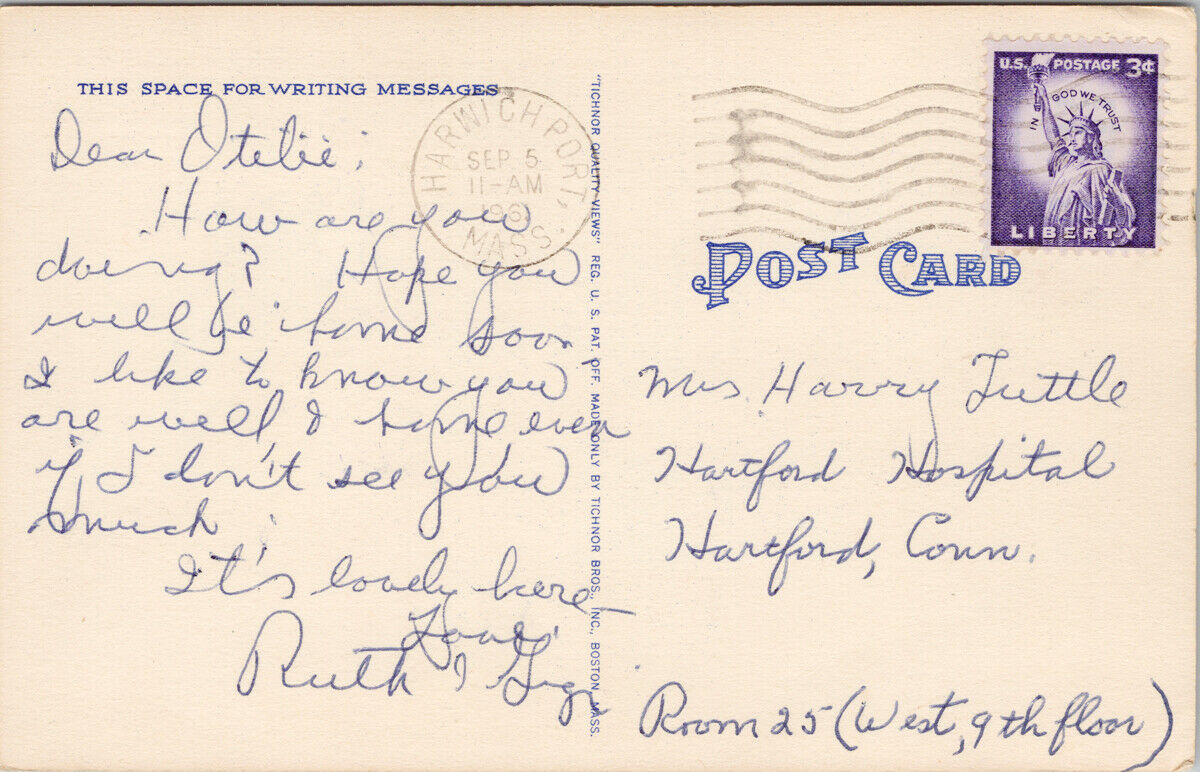 THIS SPACE FOR WRITING MESSAGES
Dear Otelie:
How are you
doing? Hope you
will be home soon
I like to know you
are well & home even
if I don't see you
much.
It's lovely here—
Love,
Ruth &
"TICHNOR QUALITY VIEWS" REG. U. S. PAT. OFF. MADE ONLY BY TICHNOR BROS., INC., BOSTON MASS.
HARWICH PORT,
SEP 5
11-AM
MASS.
U.S. POSTAGE 3¢
IN GOD WE TRUST
LIBERTY
POST CARD
Mrs. Harry Tuttle
Hartford Hospital
Hartford, Conn.
Room 25 (West, 9th floor)